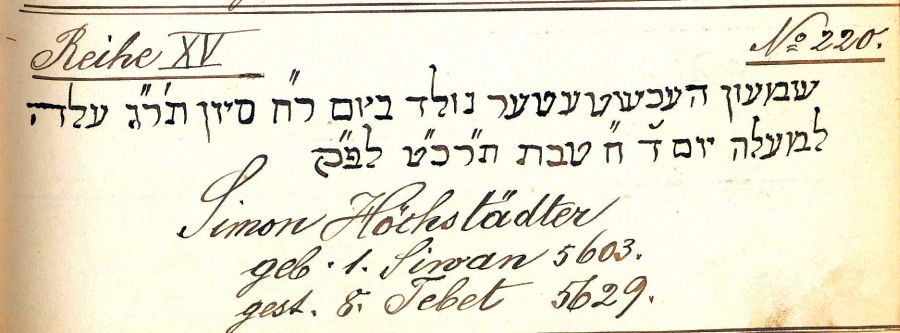 Reihe XV
№ 220.
שמעון העכשטעטער נולד ביום ר״ח סיון תר״ג עלה
למעלה יום ד׳ ח״ טבת תרכ״ט לפ״ק
Simon Höchstädter
geb. 1. Siwan 5603.
gest. 8. Tebet 5629.